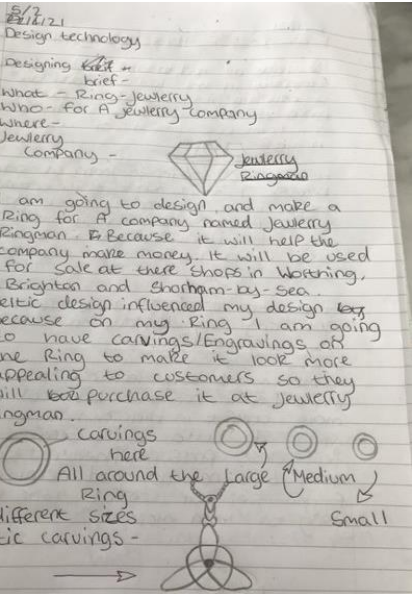 5/2
21
Design technology
Designing
brief-
What - Ring-Jewlerry
Who - for A jewlerry company
where-
Jewlerry
Company -
Jewlerry
Ringman
am going to design and make a
Ring for A company named Jewlerry
Ringman. Because it will help the
company make money. It will be used
for sale at there shops in Worthing,
Brighton and Shorham-by-Sea.
eltic design influenced my design
ecause on my Ring I am going
to have carvings/Engravings on
he Ring to make it look more
appealing to customers so they
ill purchase it at Jewlerry
ingman.
carvings
here
All around the
Ring
Large
Medium
Small
different sizes
tic carvings -